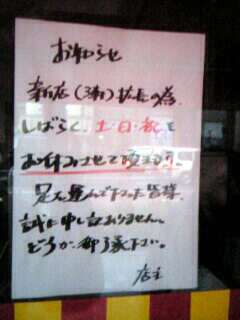 お知らせ
新店(3割)拡長の為
しばらく、土・日・祝を
お休みさせて頂きます。
足元運んで下さった皆様、
誠に申し訳ありません。
どうか御了承下さい。
店主